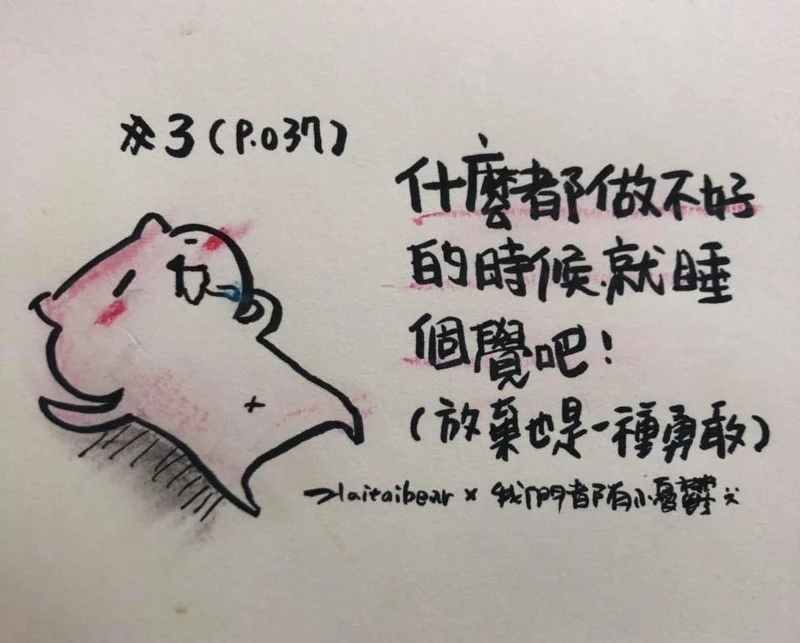 ※3(P.037)
什麼都做不好
的時候.就睡
個覺吧!
(放棄也是一種勇敢)
laitaibear × 我們都有小憂鬱